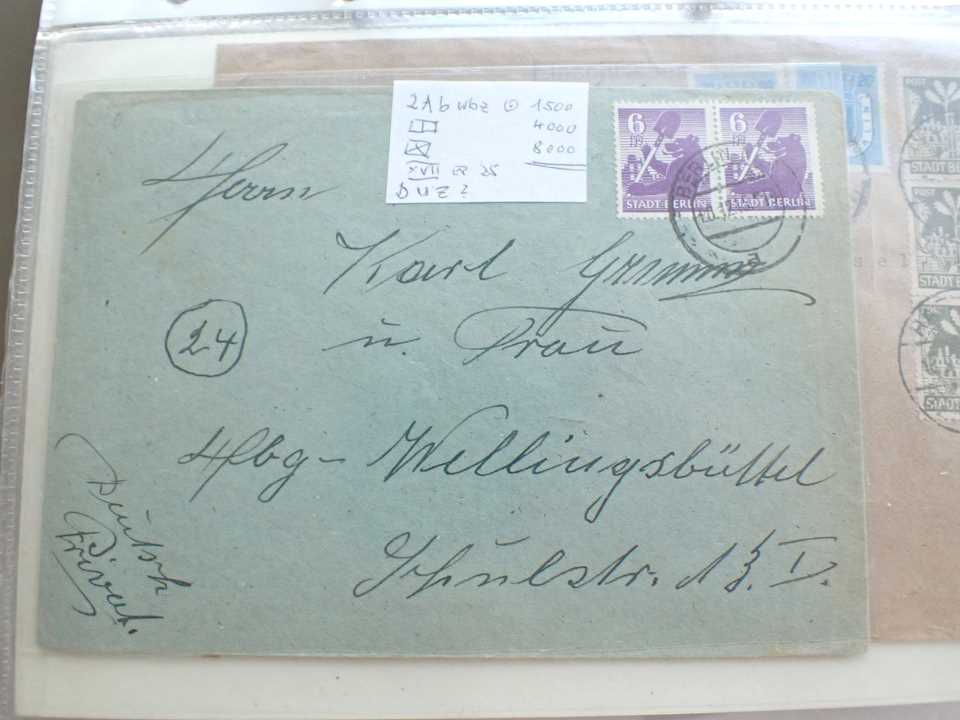 2Ab wbz ⊙ 1500
4000
8000
XVII
D
6 6
STADT BERLIN STADT BERLIN
BERLIN
a
Herrn
Karl
24
u. Frau
Hbg-Wellingsbüttel
Schulstr. 13. I.
Deutsch
Privat.
POST
STADT BERLIN
POST
STADT BERLIN